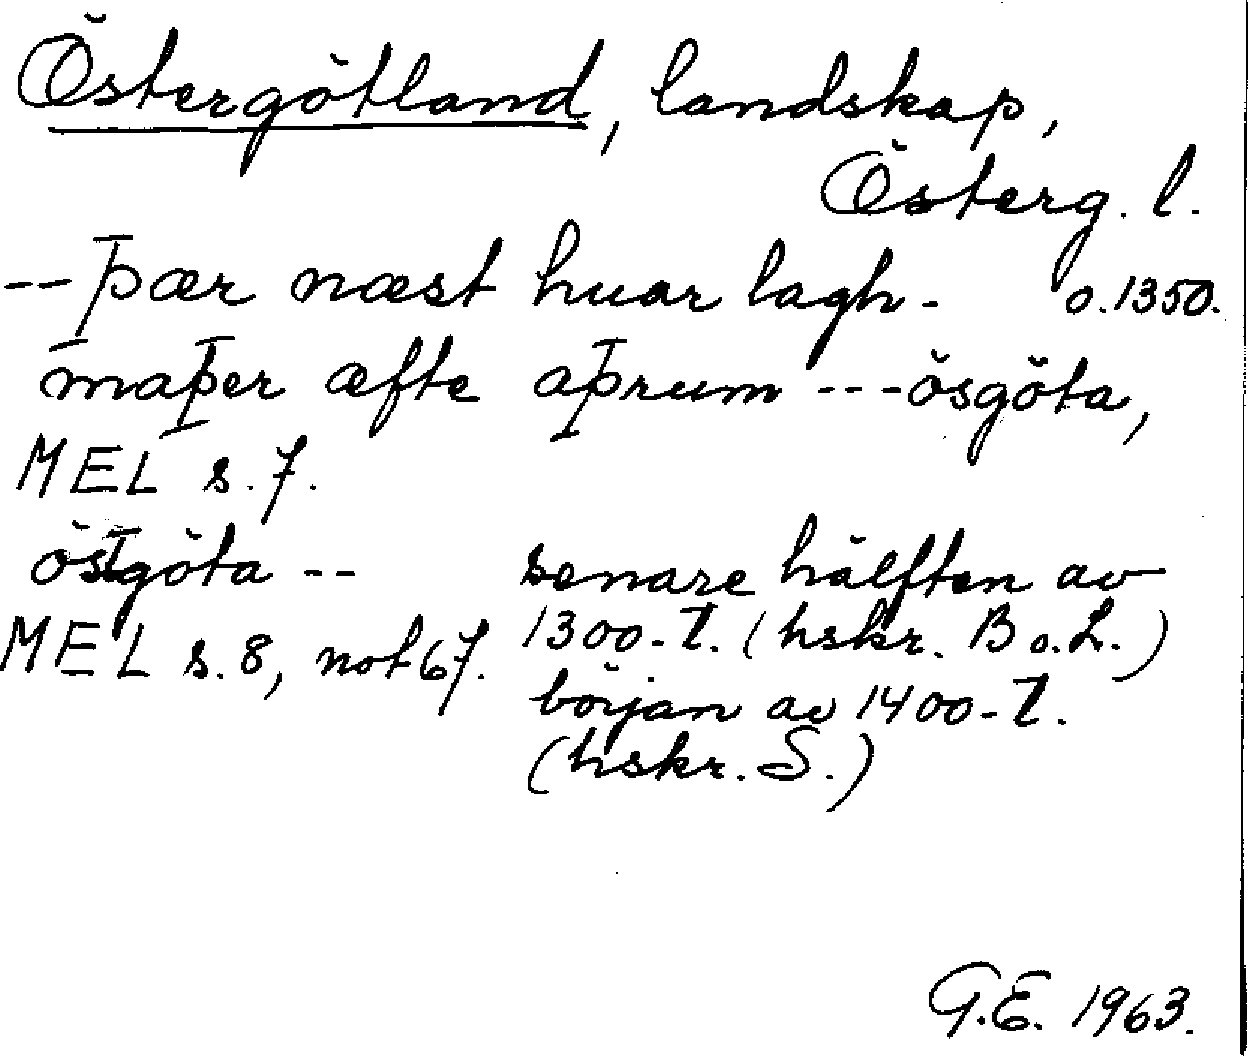 Östergötland, landskap,
Österg. l.
-- þær næst huar lagh- o. 1350.
maþer æfte aþrum --- ösgöta,
MEL s. 7.
östgöta -- senare hälften av
MEL s. 8, not 67. 1300-t. (hskr. B o. L.)
början av 1400-t.
(hskr. S.)
G.E. 1963.